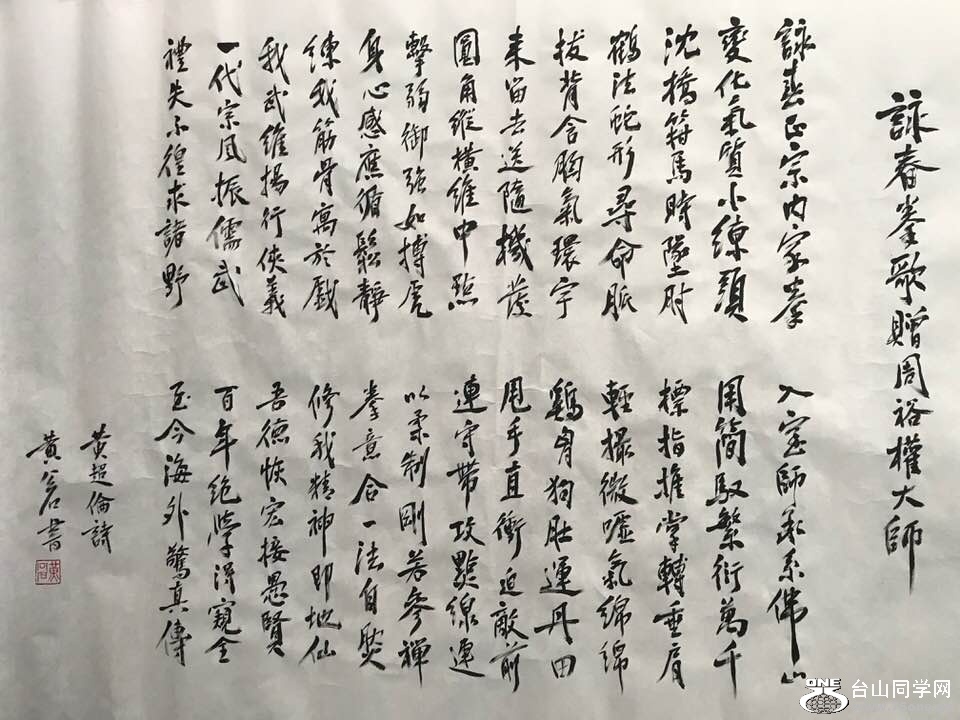 詠春拳歌贈周裕權大師
詠春正宗內家拳 入室師承系佛山
變化氣質小練頭 用簡馭繁衍萬千
沈橋箝馬時墜肘 標指攤掌轉垂肩
鶴法蛇形尋命脈 輕撮微噓氣綿綿
拔背含胸氣環宇 鷄身狗肚運丹田
来留去送隨機發 甩手直衝迫敵前
圓角縱橫維中點 連守帶攻點線連
擊弱御強如搏虎 以柔制剛若參禪
身心感應循鬆靜 拳意合一法自然
練我筋骨寓於戲 修我精神即地仙
我武維揚行俠義 吾德恢宏接愚賢
一代宗風振儒武 百年絕學得窺全
禮失不徨求諸野 至今海外驚真傳
黃超倫詩
黃 書
ONE
台山同学网